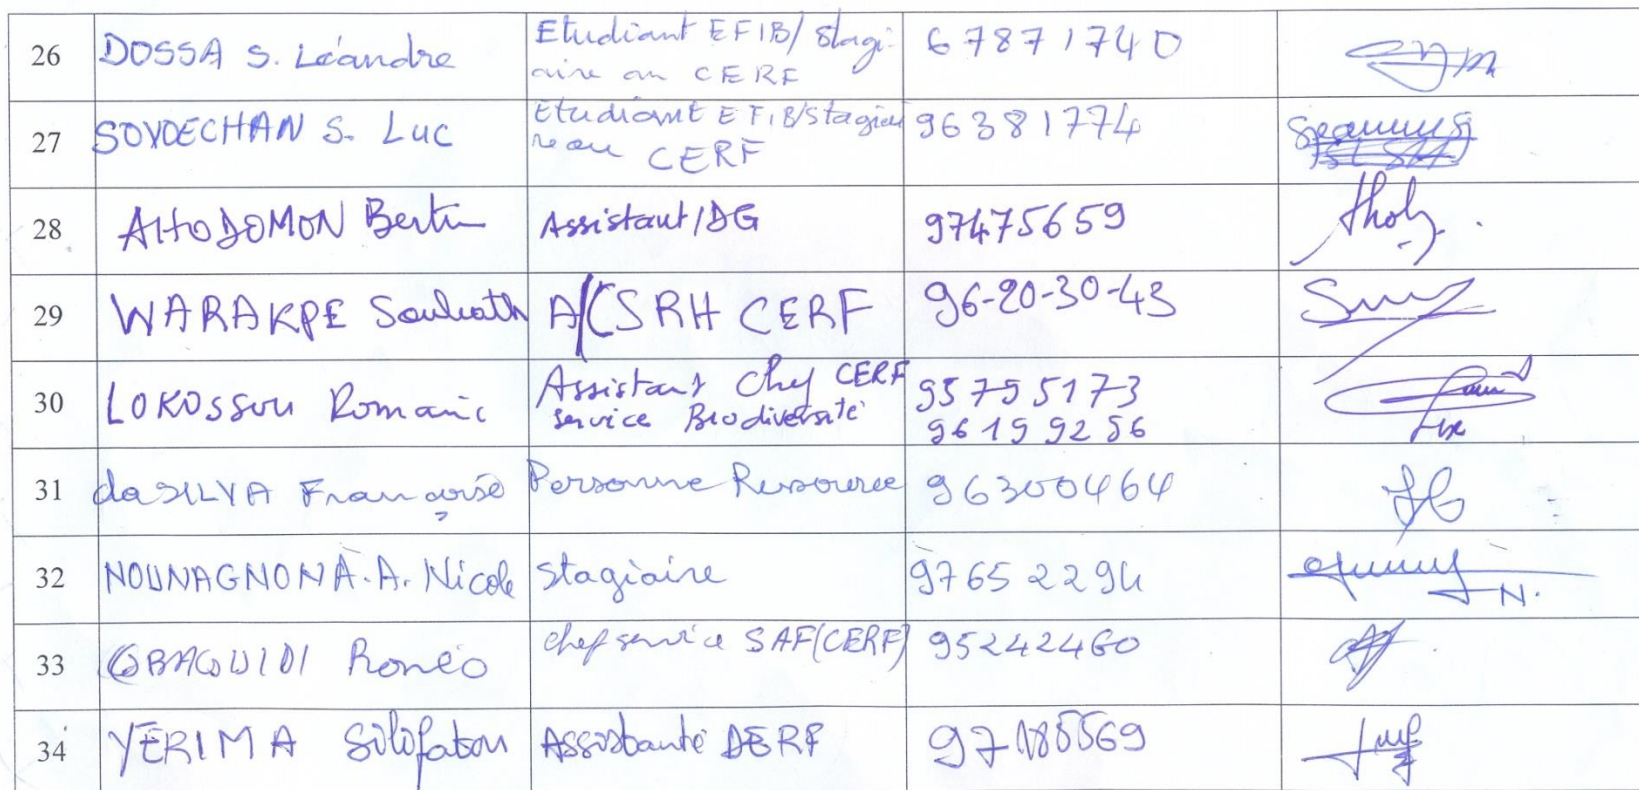 26 DOSSA S. Léandre Etudiant EFIB/ Stagi- 67871740
aire au CERF
27 SOVOECHAN S. Luc Etudiant EFIB/Stagiai 96381774
re au CERF
28 AHODOMON Bertin Assistant/DG 97475659
29 WARAKPE Souliath A/CSRH CERF 96-20-30-43
30 LOKOSSOU Romaric Assistant Chef CERF 95795173
service Biodiversité 96199256
31 da SILVA Françoise Personne Ressource 96300464
32 NOUNAGNON A. A. Nicole Stagiaire 97652294
N.
33 GBAGUIDI Roméo chef service SAF(CERF) 95242460
34 YERIMA Assistante DERF